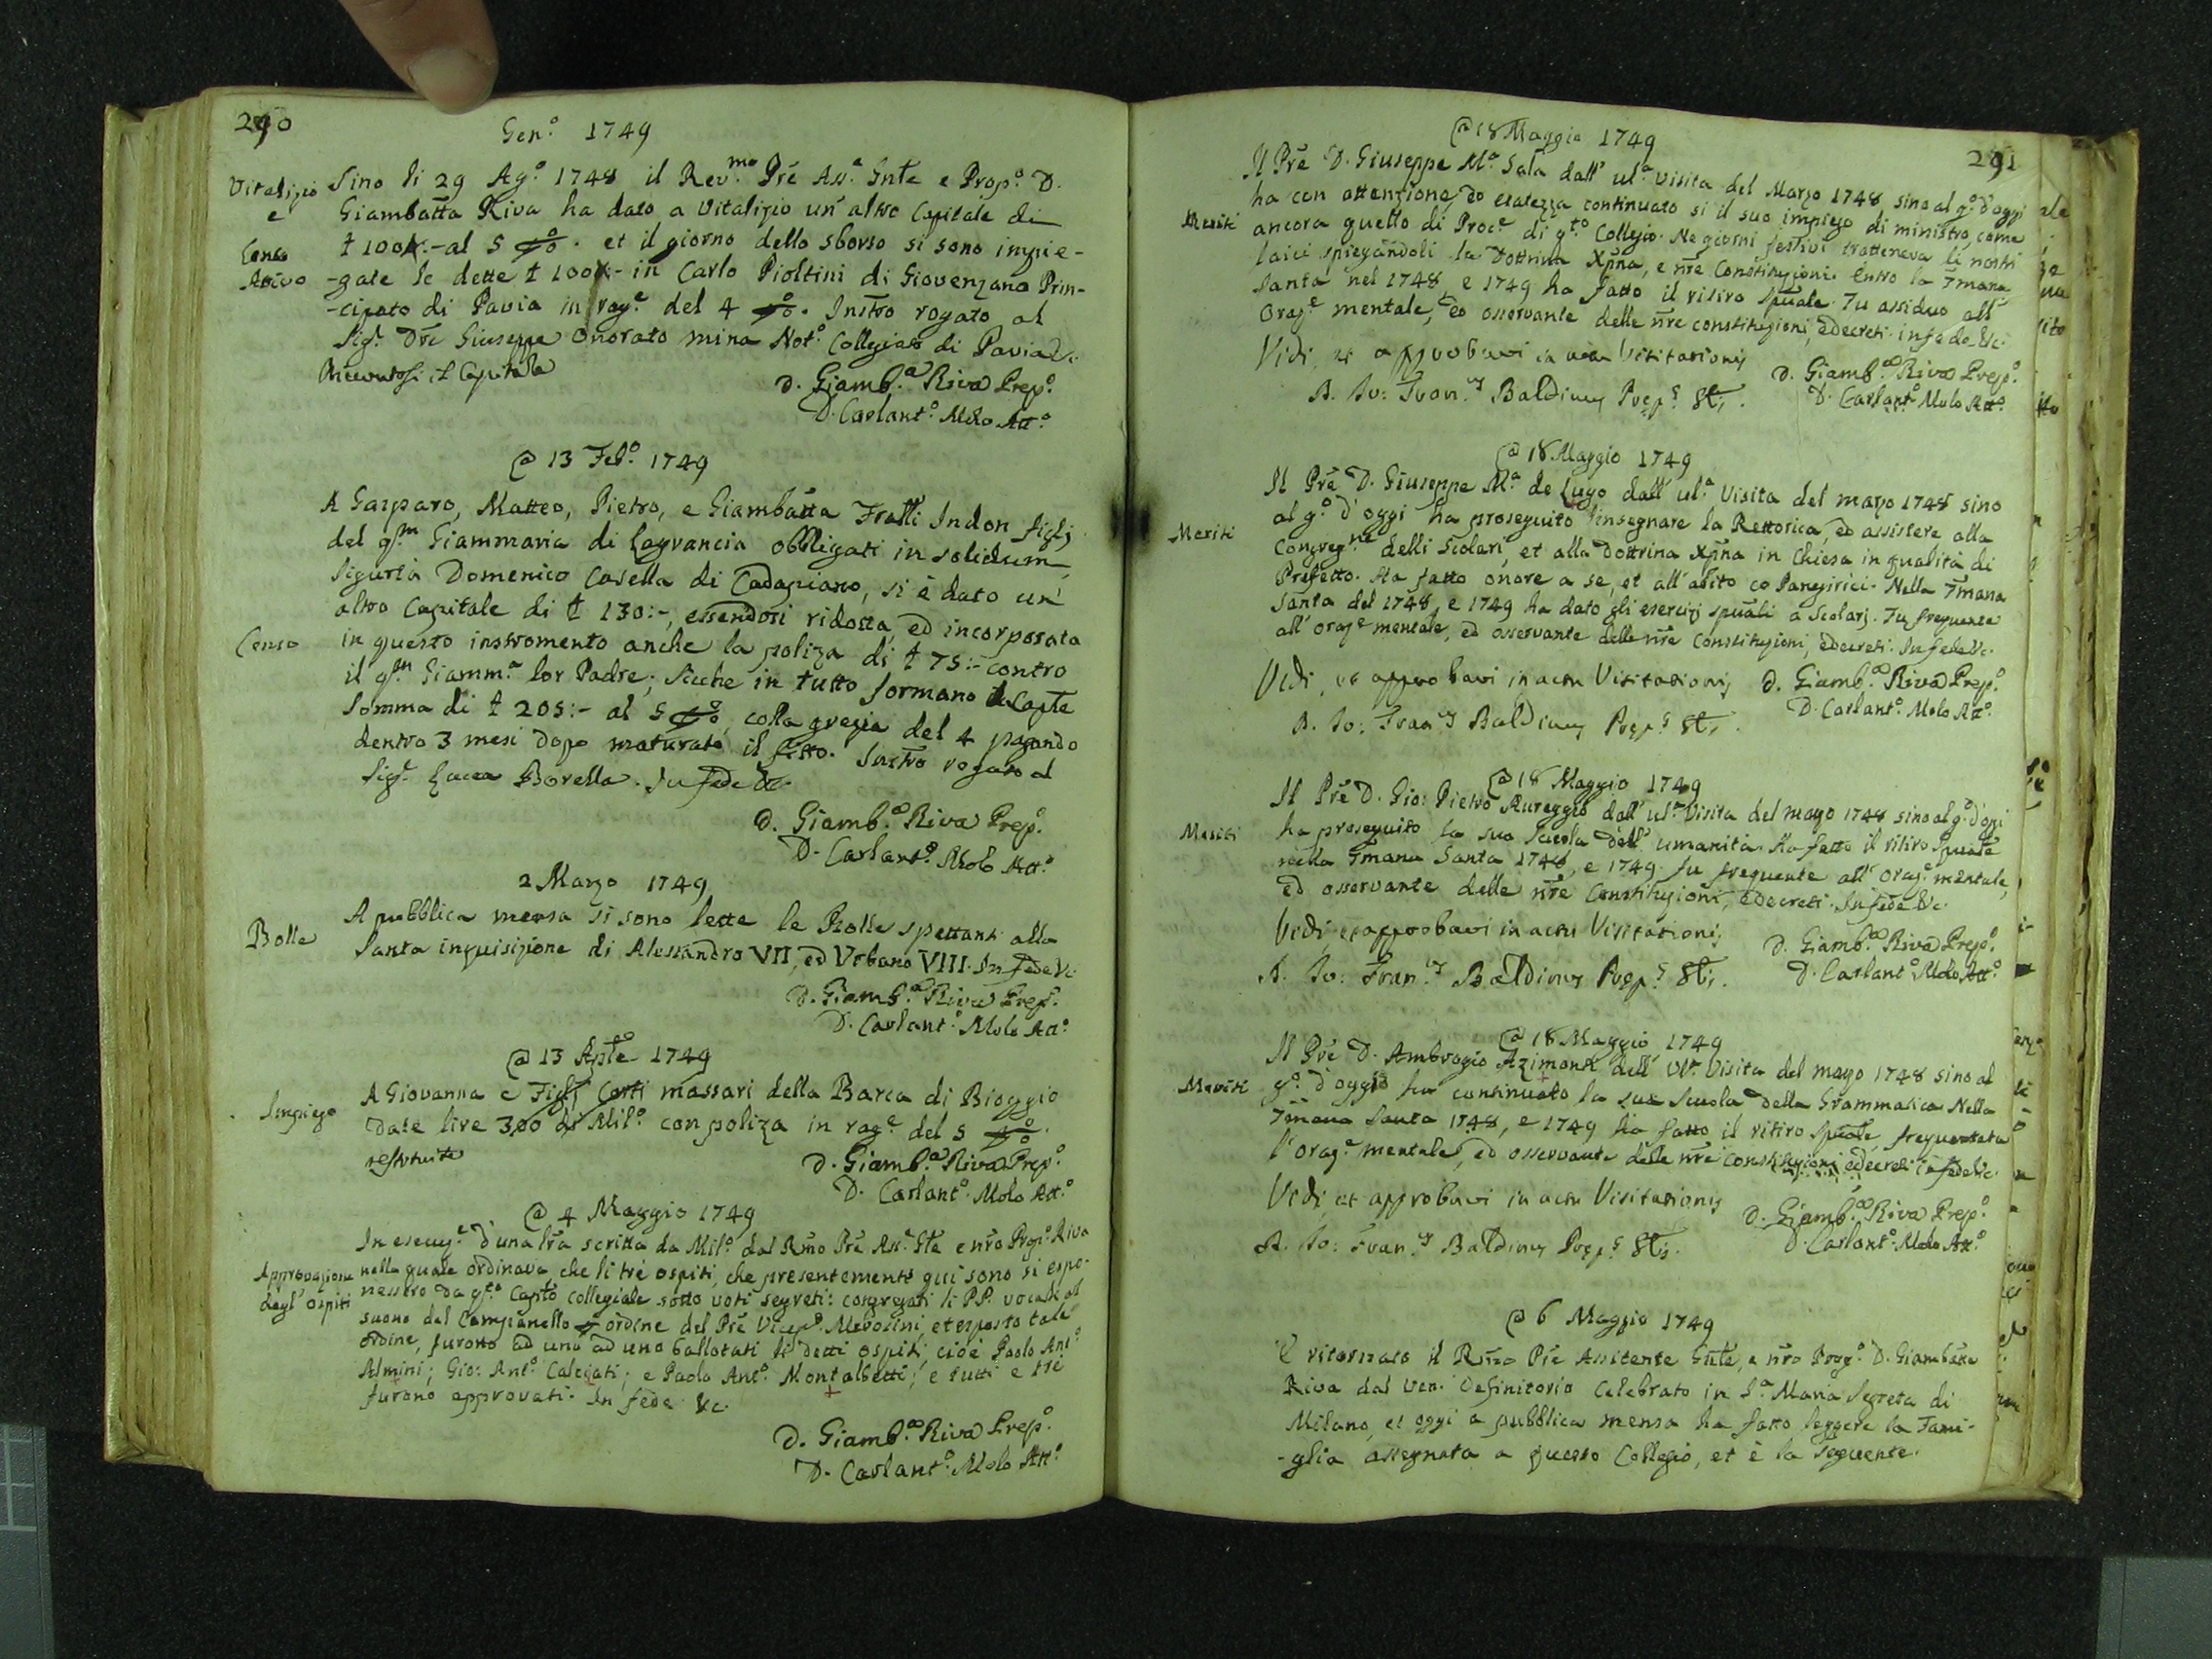 290
Gen.º 1749
Vitalizio
e
Censo
Attivo
Sino li 29 Ag.º 1748 il Rev.mo Pre Ass.e Gnte e Prop.º D.
Giambatta Riva ha dato a Vitalizio un' altro Capitale di
ŧ 100:- al 5 p%. et il giorno dello sborso si sono impie-
-gate le dette ŧ 100:- in Carlo Pioltini di Giovenzano Prin-
-cipato di Pavia in rag.e del 4 p%. Instro rogato al
Sig.r Dre Giuseppe Onorato mina Not.º Collegiato di Pavia &c.
Ricevutosi il Capitale
D. Giamb.a Riva Prep.º
D. Carlant.º Molo Att.º
@ 13 Feb.º 1749
Censo
A Gasparo, Matteo, Pietro, e Giambatta Fratti Indon figlj
del q.m Giammaria di Lagrancia obbligati in solidum,
sigurtà Domenico Casella di Cadapiano, si è dato un'
altro Capitale di ŧ 130:-, essendosi ridotta, ed incorporata
in questo instromento anche la poliza di ŧ 75:- contro
il q.m Giamm.a lor Padre; sicche in tutto formano il Capte
somma di ŧ 205:- al 5 p%, colla grazia del 4 pagando
dentro 3 mesi dopo maturato il fitto. Instro rogato al
Sig.r Luca Borella. In fede &c.
D. Giamb.a Riva Prep.º
D. Carlant.º Molo Att.º
2 Marzo 1749
Bolle
A pubblica mensa si sono lette le Bolle spettanti alla
Santa inquisizione di Alessandro VII, ed Urbano VIII. In fede &c.
D. Giamb.a Riva Prep.º
D. Carlant.º Molo Att.º
@ 13 Aple 1749
Impiego
A Giovanna e Figlj Corti massari della Barca di Bioggio
date lire 300 di Mil.º con poliza in rag.e del 5 p%.
restituite
D. Giamb.a Riva Prep.º
D. Carlant.º Molo Att.º
@ 4 Maggio 1749
Approvazione
degl' ospiti
In esecuz.e d'una lra scritta da Mil.º dal Rmo Pre Ass.e Gte e nro Prop.º Riva
nella quale ordinava, che li tre ospiti, che presentemente qui sono si espo-
nessero da q.to Capito collegiale sotto voti segreti: congregati li PP. vocali al
suono del Campanello p ordine del Pre Vicep.º Morosini, et esposto tale
ordine, furono ad uno ad uno ballotati li detti ospiti, cioè Paolo Ant.º
Almini; Gio: Ant.º Calcijati; e Paolo Ant.º Montalbetti; e tutti e tre
furono approvati. In fede &c.
D. Giamb.a Riva Prep.º
D. Carlant.º Molo Att.º
291
@ 18 Maggio 1749
Meriti
Il Pre D. Giuseppe M.a Sala dall' ul.a visita del Marzo 1748 sino al g.º d'oggi
ha con attenzione, ed esatezza continuato si il suo impiego di ministro, come
ancora quello di Proc.e di q.to Collegio. Ne giorni festivi tratteneva li nostri
laici spiegandoli la Dottrina Xpna, e nre Constituzioni. Entro la 7mana
Santa nel 1748, e 1749 ha fatto il ritiro spuale. Fu assiduo all'
Oraz.e mentale, ed osservante delle nre constituzioni, e decreti. in fede &c.
Vidi, et approbavi in actu Visitationis
D. Giamb.a Riva Prep.º
A. Jo: Fran.s Baldinus Prep.s
D. Carlant.º Molo Att.º
@ 18 Maggio 1749
Meriti
Il Pre D. Giuseppe M.a de Lugo dall' ul.a Visita del marzo 1748 sino
al g.º d'oggi ha proseguito l'insegnare la Rettorica, ed assistere alla
Congreg.ne delli Scolari, et alla Dottrina Xpna in Chiesa in qualità di
Prefetto. Ha fatto onore a se, et all' abito co Panegirici. Nella 7mana
Santa del 1748, e 1749 ha dato gli esercizj spuali a Scolarj. Fu frequente
all' oraz.e mentale, ed osservante delle nre Constituzioni, e decreti. In fede &c.
Vidi, et approbavi in actu Visitationis
D. Giamb.a Riva Prep.º
A. Jo: Fran.s Baldinus Prep.s
D. Carlant.º Molo Att.º
@ 18 Maggio 1749
Meriti
Il Pre D. Gio: Pietro Aureggio dall' ul.a Visita del mazo 1748 sino al g.º d'oggi
ha proseguito la sua Scuola dell' umanità. Ha fatto il ritiro spuale
nella 7mana Santa 1748, e 1749. fu frequente all' oraz.e mentale,
ed osservante delle nre Constituzioni, e decreti. In fede &c.
Vidi, et approbavi in actu Visitationis
D. Giamb.a Riva Prep.º
A. Jo: Fran.s Baldinus Prep.s
D. Carlant.º Molo Att.º
@ 18 Maggio 1749
Meriti
Il Pre D. Ambrogio Azimonti dell' Ul.a Visita del mazo 1748 sino al
g.º d'oggi ha continuato la sua Scuola della Grammatica. Nella
7mana Santa 1748, e 1749 ha fatto il ritiro spuale, frequentata
l'oraz.e mentale, ed osservante delle nre Constituzioni, e decreti in fede &c.
Vidi, et approbavi in actu Visitationis
D. Giamb.a Riva Prep.º
A. Jo: Fran.s Baldinus Prep.s
D. Carlant.º Molo Att.º
@ 6 Maggio 1749
È ritornato il Rmo Pre Assitente Gnle, e nro Prop.º D. Giambatta
Riva dal Ven. Definitorio Celebrato in S.a Maria Segreta di
Milano, et oggi a pubblica mensa ha fatto leggere la Fami-
-glia assegnata a questo Collegio, et è la seguente.